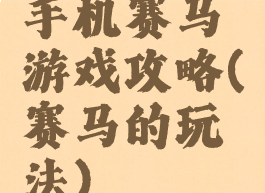 手机赛马
游戏攻略(
赛马的玩
法)